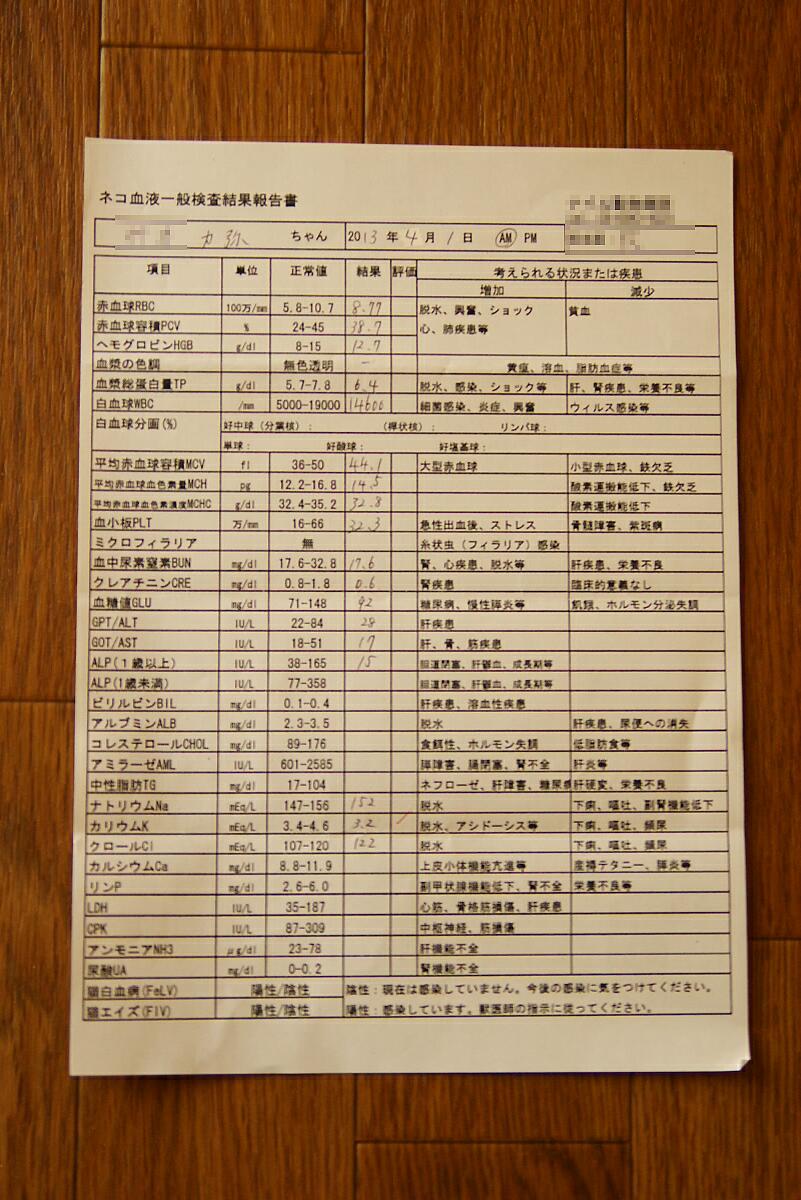 ネコ血液一般検査結果報告書
力弥 ちゃん 2013年4月1日 AM PM
項目 単位 正常値 結果 評価 考えられる状況または疾患
増加 減少
赤血球RBC 100万/mm 5.8-10.7 8.77 脱水、興奮、ショック 貧血
赤血球容積PCV % 24-45 38.7 心、肺疾患等
ヘモグロビンHGB g/dl 8-15 12.7
血漿の色調 無色透明 - 黄疸、溶血、脂肪血症等
血漿総蛋白量TP g/dl 5.7-7.8 6.4 脱水、感染、ショック等 肝、腎疾患、栄養不良等
白血球WBC /mm 5000-19000 14600 細菌感染、炎症、興奮 ウィルス感染等
白血球分画(%) 好中球(分葉核): (桿状核): リンパ球:
単球: 好酸球: 好塩基球:
平均赤血球容積MCV fl 36-50 44.1 大型赤血球 小型赤血球、鉄欠乏
平均赤血球血色素量MCH pg 12.2-16.8 14.5 酸素運搬能低下、鉄欠乏
平均赤血球血色素濃度MCHC g/dl 32.4-35.2 32.8 酸素運搬能低下
血小板PLT 万/mm 16-66 32.3 急性出血後、ストレス 骨髄障害、紫斑病
ミクロフィラリア 無 糸状虫(フィラリア)感染
血中尿素窒素BUN mg/dl 17.6-32.8 17.6 腎、心疾患、脱水等 肝疾患、栄養不良
クレアチニンCRE mg/dl 0.8-1.8 0.6 腎疾患 臨床的意義なし
血糖値GLU mg/dl 71-148 92 糖尿病、慢性膵炎等 飢餓、ホルモン分泌失調
GPT/ALT IU/L 22-84 28 肝疾患
GOT/AST IU/L 18-51 17 肝、骨、筋疾患
ALP(1歳以上) IU/L 38-165 15 胆道閉塞、肝鬱血、成長期等
ALP(1歳未満) IU/L 77-358 胆道閉塞、肝鬱血、成長期等
ビリルビンBIL mg/dl 0.1-0.4 肝疾患、溶血性疾患
アルブミンALB mg/dl 2.3-3.5 脱水 肝疾患、尿便への消失
コレステロールCHOL mg/dl 89-176 食餌性、ホルモン失調 低脂肪食等
アミラーゼAML mg/dl 601-2585 膵障害、腸閉塞、腎不全 肝炎等
中性脂肪TG mg/dl 17-104 ネフローゼ、肝障害、糖尿病 肝硬変、栄養不良
ナトリウムNa mEq/L 147-156 152 脱水 下痢、嘔吐、副腎機能低下
カリウムK mEq/L 3.4-4.6 3.2 脱水、アシドーシス等 下痢、嘔吐、頻尿
クロールCl mEq/L 107-120 122 脱水 下痢、嘔吐、頻尿
カルシウムCa mg/dl 8.8-11.9 上皮小体機能亢進等 産褥テタニー、膵炎等
リンP mg/dl 2.6-6.0 副甲状腺機能低下、腎不全 栄養不良等
LDH IU/L 35-187 心筋、骨格筋損傷、肝疾患
CPK IU/L 87-309 中枢神経、筋損傷
アンモニアNH3 μg/dl 23-78 肝機能不全
尿酸UA mg/dl 0-0.2 腎機能不全
猫白血病(FeLV) 陽性/陰性 陰性:現在は感染していません。今後の感染に気をつけてください。
猫エイズ(FIV) 陽性/陰性 陽性:感染しています。獣医師の指示に従ってください。